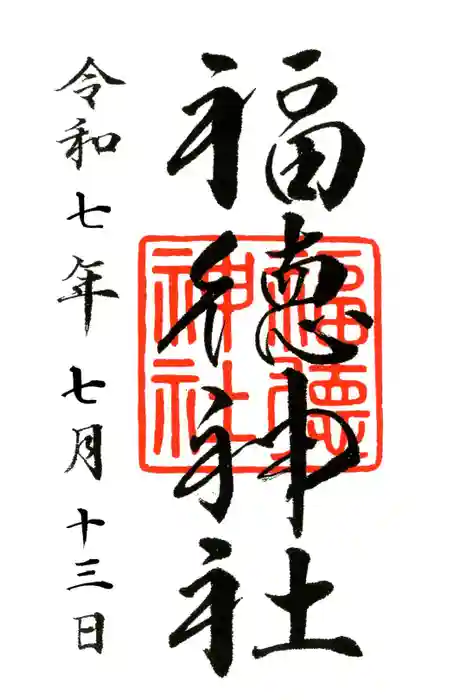 福德神社
福徳神社
令和七年七月十三日